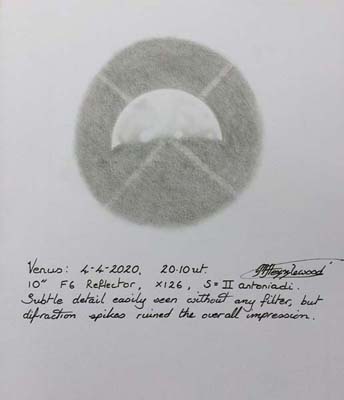 Venus: 4-4-2020, 20·10ut.
10" F6 Reflector, x126, S=II antoniadi.
Subtle detail easily seen without any filter, but
difraction spikes ruined the overall impression.